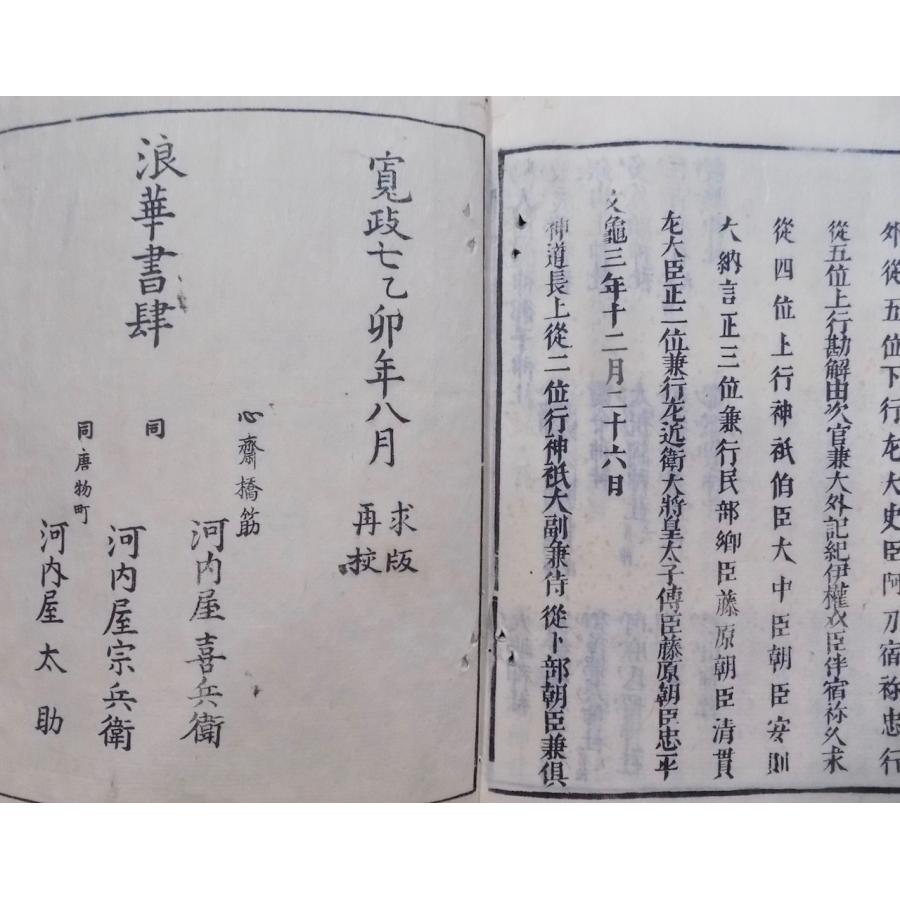 外從五位下行左大史臣阿刀宿祢忠行
從五位上行勘解由次官兼大外記紀伊權介臣伴宿祢久永
從四位上行神祇伯臣大中臣朝臣安則
大納言正三位兼行民部卿臣藤原朝臣清貫
左大臣正二位兼行左近衛大將皇太子傅臣藤原朝臣忠平
文龜三年十二月二十六日
神道長上從二位行神祇大副兼侍從卜部朝臣兼俱
寬政七乙卯年八月
求版
再校
浪華書肆
心齋橋筋
河内屋喜兵衛
同
河内屋宗兵衛
同唐物町
河内屋太助